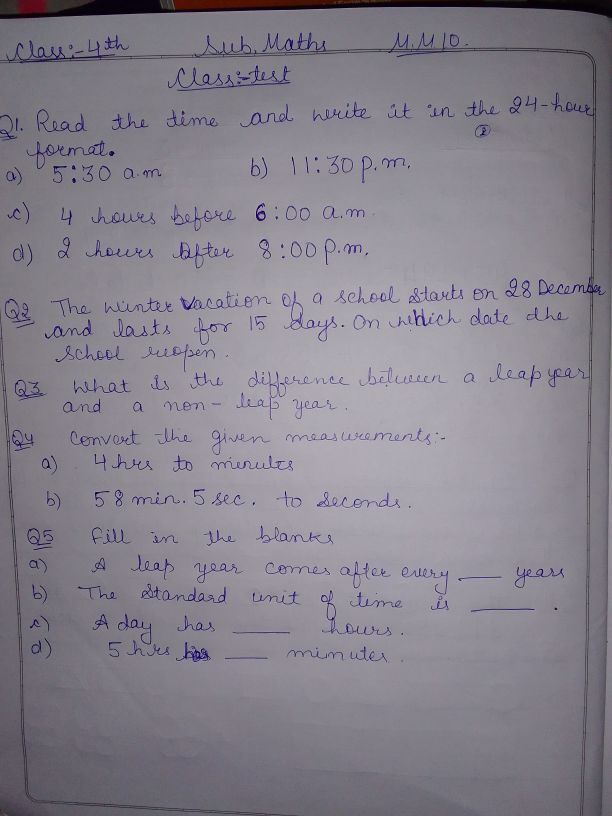 Class:- 4th Sub. Maths M.M 10.
Class:-test
Q1. Read the time and write it in the 24-hour
format. 2
a) 5:30 a.m b) 11:30 p.m.
c) 4 hours before 6:00 a.m.
d) 2 hours After 8:00 P.m.
Q2 The winter vacation of a school starts on 28 December
and lasts for 15 days. On which date the
school reopen.
Q3 What is the difference between a leap year
and a non-leap year.
Q4 Convert the given measurements:-
a) 4 hrs to minutes
b) 58 min. 5 sec. to seconds.
Q5 Fill in the blanks
a) A leap year comes after every ___ years
b) The Standard unit of time is ___ .
c) A day has ___ hours.
d) 5 hrs has ___ minutes.